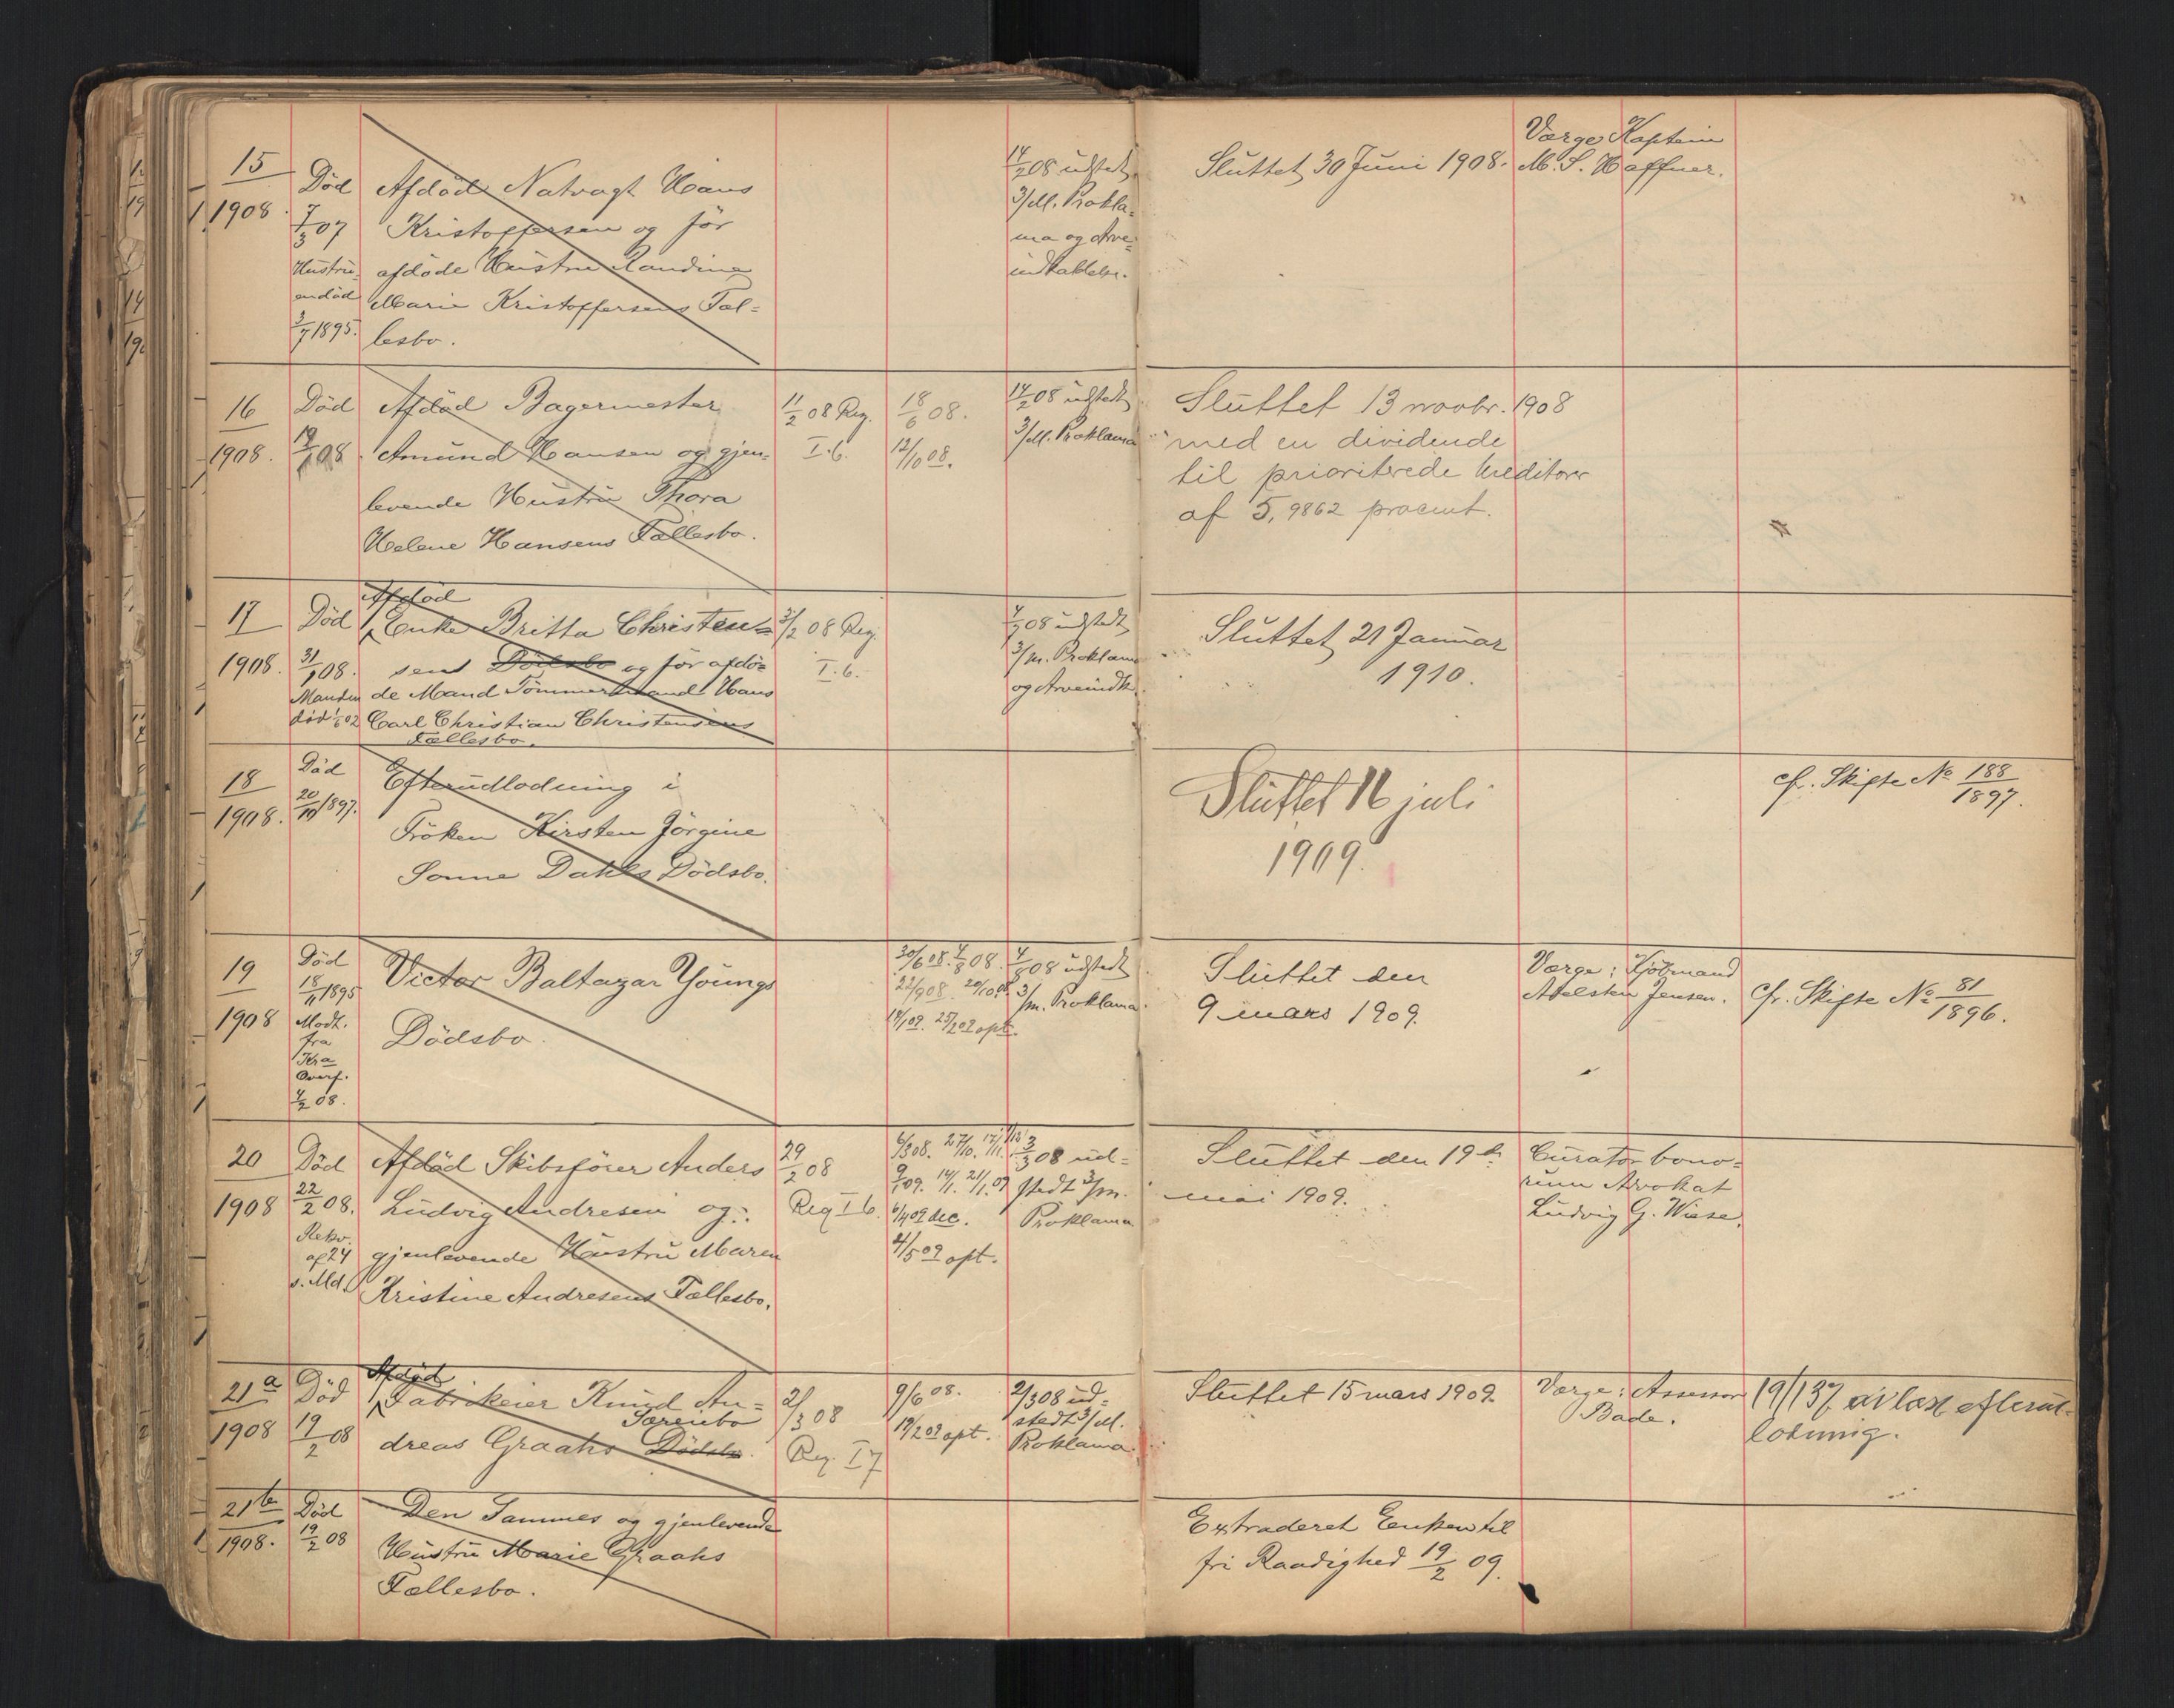 15
1908.
Död
7/3 07
Hustru-
en död
3/7 1895.
Afdöd Natvagt Hans
Kristoffersen og för
afdöde Hustru Randine
Marie Kristoffersens Fæl=
lesbo.
14/2 08 udstedt
3/M. Prokla=
ma og Arve=
indkaldelse.
Sluttet 30 Juni 1908.
Værge Kaptein
M. S. Haffner.
16
1908.
Död
08
Afdöd Bagermester
Amund Hansen og gjen=
levende Hustru Thora
Helene Hansens Fællesbo.
11/2 08 Reg.
I. 6.
18/6 08.
12/10 08.
14/2 08 udstedt
3/M. Proklama
Sluttet 13 novbr. 1908
med en dividende
til prioriterede kreditorer
af 5,9862 procent.
17
1908.
Död
31/1 08.
Manden
död 1/6 02
Afdöd
Enke Britta Christen=
sens Dödsbo og för afdö=
de Mand Tömmermand Hans
Carl Christian Christensens
Fællesbo.
3/2 08 Reg.
I. 6.
08 udstedt
3/m. Proklama
og Arveindk.
Sluttet 21 Januar
1910.
18
1908.
Död
20/10 1897.
Efterudlodning i
Fröken Kirsten Jörgine
Sonne Dahls Dödsbo.
Sluttet 16 juli
1909.
cfr. Skifte No 188/1897.
19
1908
Död
18/11 1895
Modt.
fra
Kra
Overf.
4/2 08.
Victor Baltazar Youngs
Dödsbo.
30/6 08. 4/8 08.
22/9 08. 20/10 08.
19/1 09. 25/2 09 opt.
4/8 08 udstedt
3/m. Proklama.
Sluttet den
9 mars 1909.
Værge: Kjöbmand
Adelsten Jensen.
cfr. Skifte No 81/1896.
20
1908
Död
22/2 08.
Rekv.
af 24
s. Md.
Afdöd Skibsförer Anders
Ludvig Andresen og
gjenlevende Hustru Maren
Kristine Andresens Fællesbo.
29/2 08
Reg I 6.
6/3 08. 27/10. 17/11.
9/1 09. 14/1. 21/1. 09
6/4 09 dec.
4/5 09 opt.
3/3 08 ud=
stedt 3/m.
Proklama
Sluttet den 19de
mai 1909.
Curator bono=
rum Advokat
Ludvig G. Wiese.
21a
1908
Död
19/2 08
Afdöd
Fabrikeier Knud An=
Særeiebo
dreas Graahs Dödsbo.
2/3 08
Reg. I 7
9/6 08.
19/2 09 opt.
2/3 08 ud=
stedt 3/M.
Proklama.
Sluttet 15 mars 1909.
Værge: Assessor
Bade.
19/1 37 avlæst efterut-
lodning.
21ter
1908.
Död
19/2 08
Den Sammes og gjenlevende
Hustru Marie Graahs
Fællesbo.
Extraderet Enken til
fri Raadighed 19/2 09.